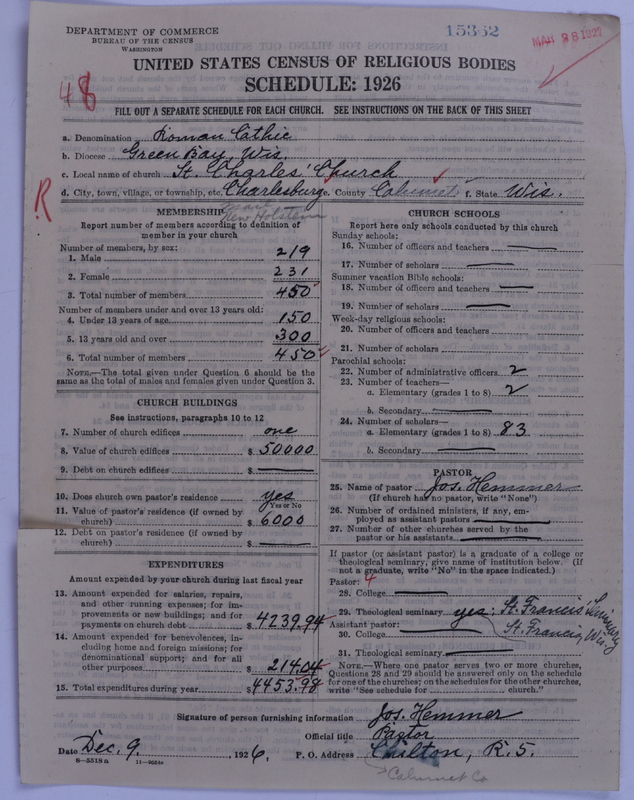 DEPARTMENT OF COMMERCE
BUREAU OF THE CENSUS
WASHINGTON
15362
MAR 28 1927
UNITED STATES CENSUS OF RELIGIOUS BODIES
SCHEDULE: 1926
48
FILL OUT A SEPARATE SCHEDULE FOR EACH CHURCH. SEE INSTRUCTIONS ON THE BACK OF THIS SHEET
a. Denomination Roman Cathlic
b. Diocese Green Bay, Wis.
c. Local name of church St. Charles' Church
d. City, town, village, or township, etc. Charlesburg e. County Calumet f. State Wis.
R
near New Holstein
MEMBERSHIP
Report number of members according to definition of
member in your church
Number of members, by sex:
1. Male 219
2. Female 231
3. Total number of members 450
Number of members under and over 13 years old:
4. Under 13 years of age 150
5. 13 years old and over 300
6. Total number of members 450
NOTE.—The total given under Question 6 should be the
same as the total of males and females given under Question 3.
CHURCH BUILDINGS
See instructions, paragraphs 10 to 12
7. Number of church edifices one
8. Value of church edifices $ 50000
9. Debt on church edifices $
10. Does church own pastor's residence yes
Yes or No
11. Value of pastor's residence (if owned by
church) $ 6000
12. Debt on pastor's residence (if owned by
church) $
EXPENDITURES
Amount expended by your church during last fiscal year
13. Amount expended for salaries, repairs,
and other running expenses; for im-
provements or new buildings; and for
payments on church debt $ 4239.94
14. Amount expended for benevolences, in-
cluding home and foreign missions; for
denominational support; and for all
other purposes $ 214.04
15. Total expenditures during year $ 4453.98
CHURCH SCHOOLS
Report here only schools conducted by this church
Sunday schools:
16. Number of officers and teachers
17. Number of scholars
Summer vacation Bible schools:
18. Number of officers and teachers
19. Number of scholars
Week-day religious schools:
20. Number of officers and teachers
21. Number of scholars
Parochial schools:
22. Number of administrative officers 2
23. Number of teachers—
a. Elementary (grades 1 to 8) 2
b. Secondary
24. Number of scholars—
a. Elementary (grades 1 to 8) 83
b. Secondary
PASTOR
25. Name of pastor Jos. Hemmer
(If church has no pastor, write "None")
26. Number of ordained ministers, if any, em-
ployed as assistant pastors
27. Number of other churches served by the
pastor or his assistants
If pastor (or assistant pastor) is a graduate of a college or
theological seminary, give name of institution below. (If
not a graduate, write "No" in the space indicated.)
Pastor: 4
28. College
29. Theological seminary yes: St. Francis Seminary
Assistant pastor: St. Francis, Wis.
30. College
31. Theological seminary
NOTE.—Where one pastor serves two or more churches,
Questions 28 and 29 should be answered only on the schedule
for one of the churches; on the schedules for the other churches,
write "See schedule for church."
Signature of person furnishing information Jos. Hemmer
Official title Pastor
Date Dec. 9, 1926, P. O. Address Chilton, R. 5.
8—5518a
Calumet Co